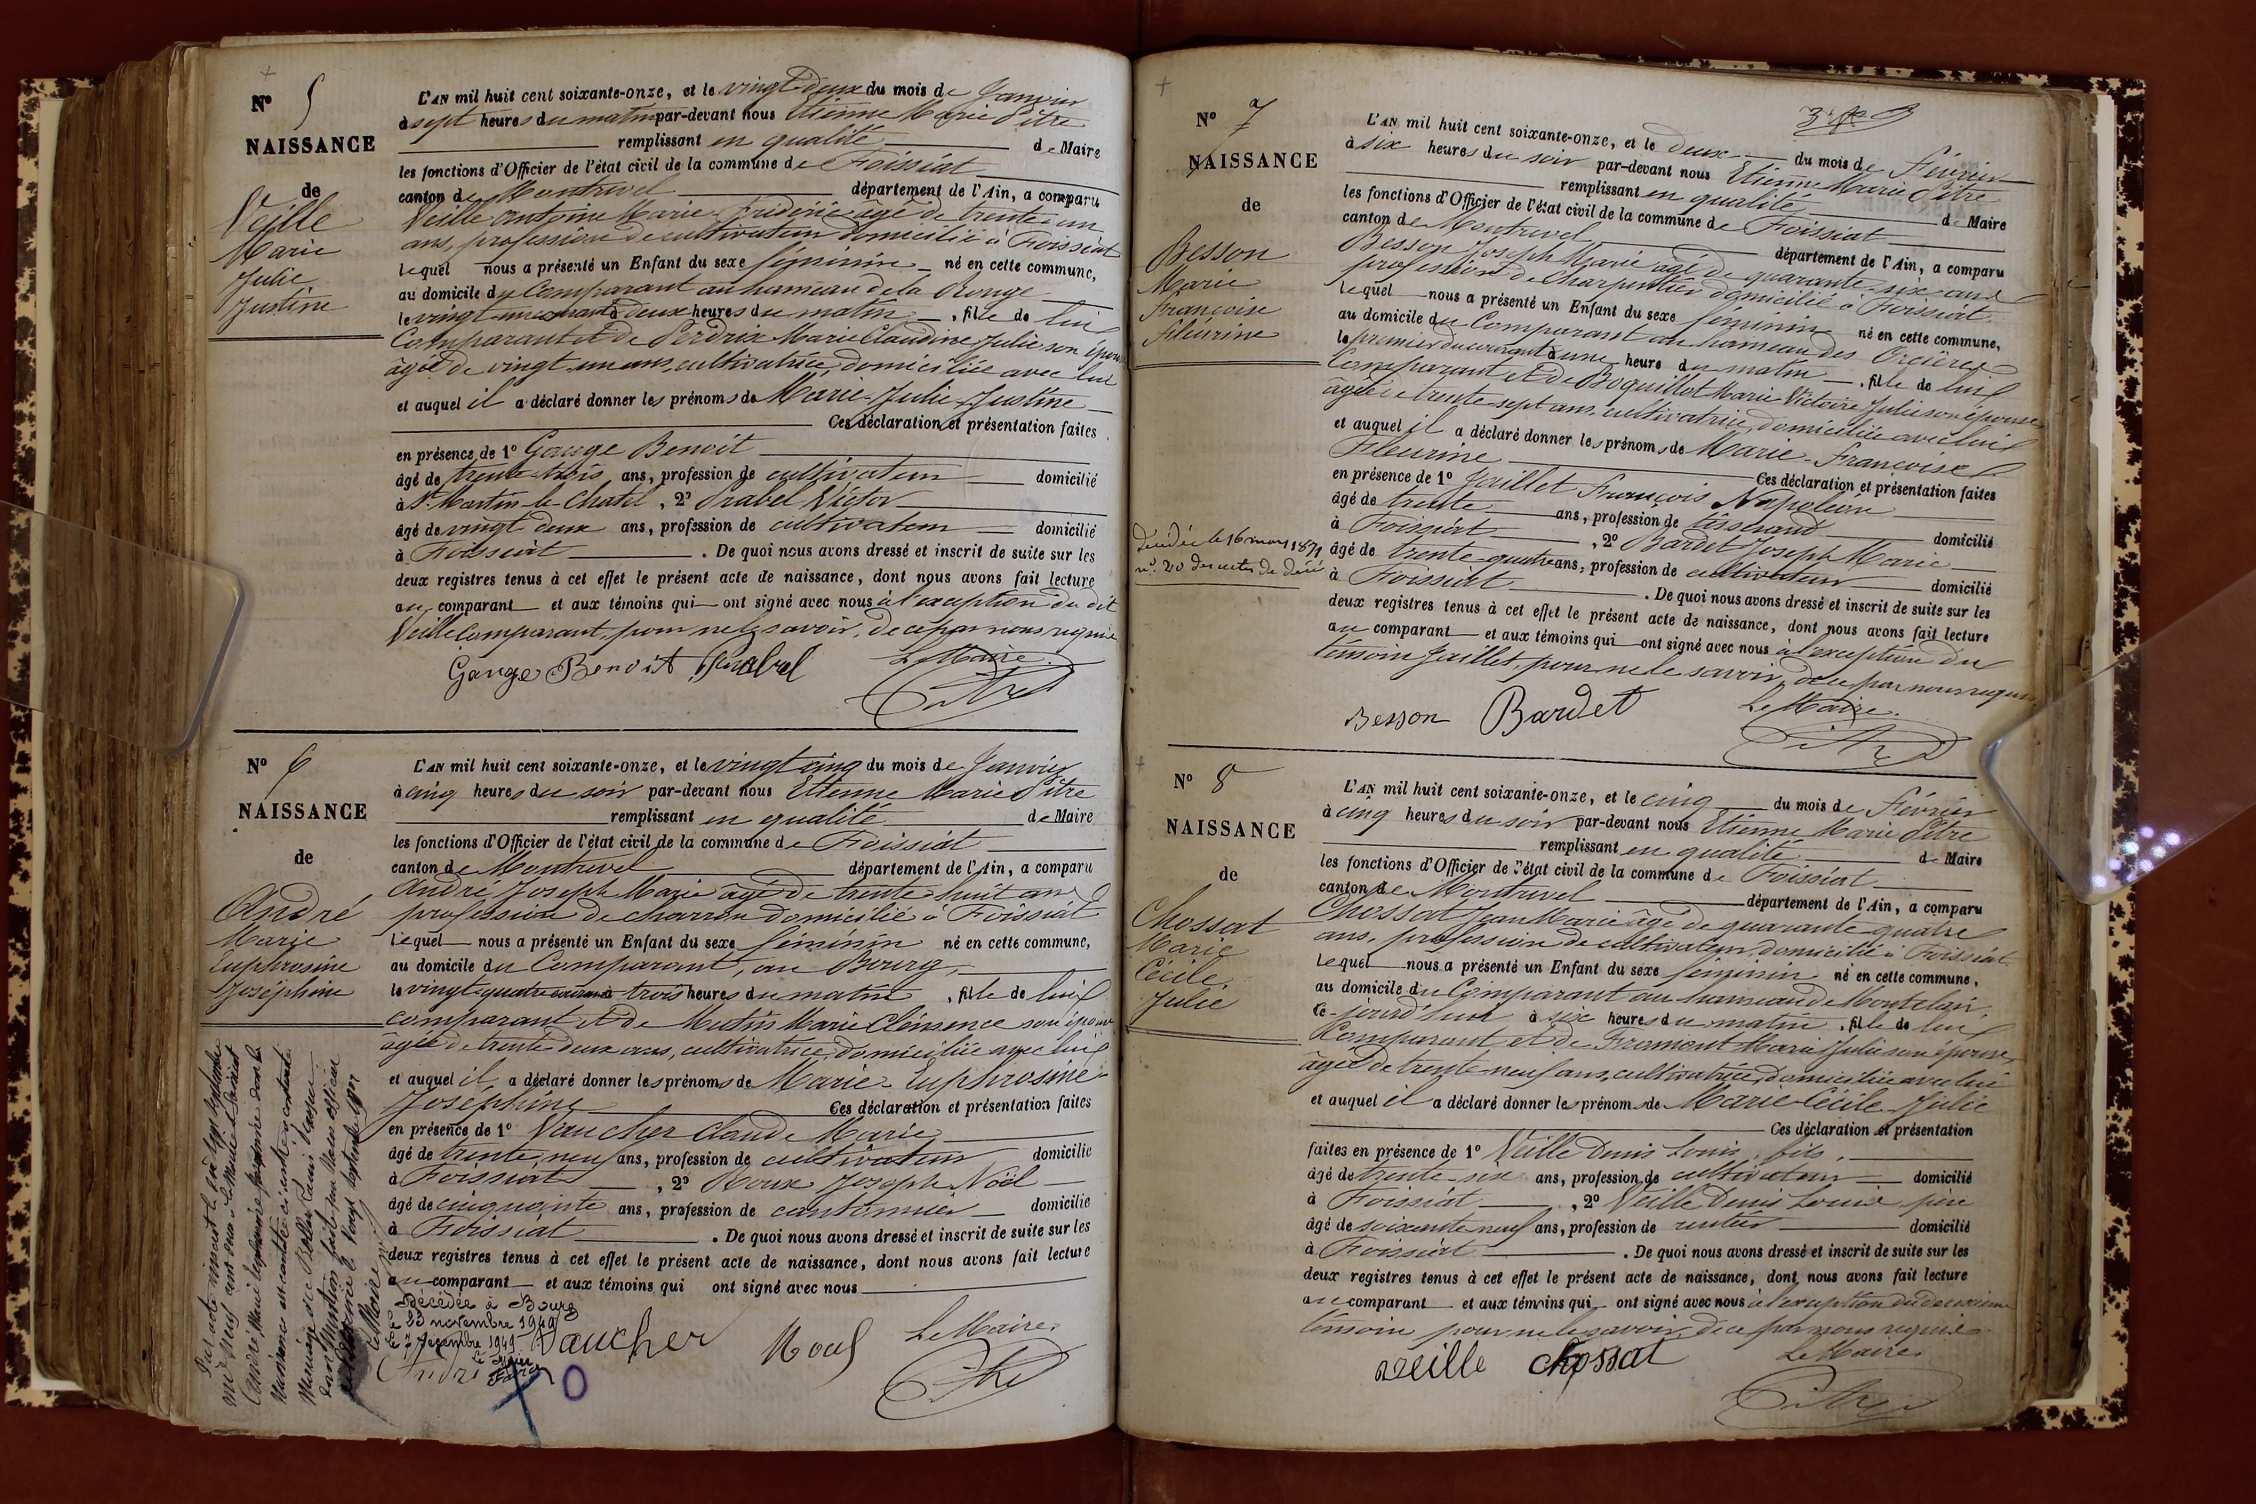 N° 5
NAISSANCE
de
Veille
Marie
Julie
Justine
L'AN mil huit cent soixante-onze, et le vingt-deux du mois de Janvier
à sept heures du matin par-devant nous Etienne Marie Pitre
remplissant en qualité de Maire
les fonctions d'Officier de l'état civil de la commune de Foissiat
canton de Montrevel département de l'Ain, a comparu
Veille Antoine Marie Fridéric âgé de trente-un
ans, profession de cultivateur domicilié à Foissiat
lequel nous a présenté un Enfant du sexe féminin né en cette commune,
au domicile du Comparant au hameau de la
le vingt-un courant à deux heures du matin, fille de lui
Comparant et de Perdrix Marie Claudine Julie son épouse
âgée de vingt-un ans, cultivatrice, domiciliée avec lui
et auquel il a déclaré donner les prénoms de Marie-Julie-Justine
Ces déclaration et présentation faites
en présence de 1° Gauge Benoit
âgé de trente-trois ans, profession de cultivateur domicilié
à St Martin-le-Chatel, 2° Prabel Victor
âgé de vingt deux ans, profession de cultivateur domicilié
à Foissiat. De quoi nous avons dressé et inscrit de suite sur les
deux registres tenus à cet effet le présent acte de naissance, dont nous avons fait lecture
au comparant et aux témoins qui ont signé avec nous à l'exception du dit
Veille Comparant, pour ne le savoir, de ce par nous requis
Gauge Benoit Prabel Le Maire
Pitre
N° 6
NAISSANCE
de
André
Marie
Euphrosine
Joséphine
L'AN mil huit cent soixante-onze, et le vingt cinq du mois de Janvier
à cinq heures du soir par-devant nous Etienne Marie Pitre
remplissant en qualité de Maire
les fonctions d'Officier de l'état civil de la commune de Foissiat
canton de Montrevel département de l'Ain, a comparu
André Joseph Marie âgé de trente-huit ans
profession de charron domicilié à Foissiat
lequel nous a présenté un Enfant du sexe féminin né en cette commune,
au domicile du Comparant, au Bourg,
le vingt-quatre courant à trois heures du matin, fille de lui
comparant et de Mutin Marie Clémence son épouse
âgée de trente deux ans, cultivatrice, domiciliée avec lui
et auquel il a déclaré donner les prénoms de Marie-Euphrosine-
Joséphine Ces déclaration et présentation faites
en présence de 1° Vaucher Claude Marie
âgé de trente-neuf ans, profession de cultivateur domicilié
à Foissiat, 2° Roux Joseph Noël
âgé de cinquante ans, profession de cantonnier domicilié
à Foissiat. De quoi nous avons dressé et inscrit de suite sur les
deux registres tenus à cet effet le présent acte de naissance, dont nous avons fait lecture
au comparant et aux témoins qui ont signé avec nous
Décédée à Bourg
le 23 novembre 1949
le 7 décembre 1949
Le Maire
André Vaucher Roux Le Maire
Pitre
N° 7
NAISSANCE
de
Besson
Marie
Françoise
Fleurine
Décédée le 16 mars 1871
n° 20 des actes de décès
L'AN mil huit cent soixante-onze, et le deux du mois de Février
à six heures du soir par-devant nous Etienne Marie Pitre
remplissant en qualité de Maire
les fonctions d'Officier de l'état civil de la commune de Foissiat
canton de Montrevel département de l'Ain, a comparu
Besson Joseph Marie âgé de quarante-six ans
profession de Charpentier domicilié à Foissiat
lequel nous a présenté un Enfant du sexe féminin né en cette commune,
au domicile du Comparant au hameau des Orcières
le premier du courant à une heure du matin, fille de lui
Comparant et de Boquillot Marie Victoire Julie son épouse
âgée de trente-sept ans, cultivatrice, domiciliée avec lui
et auquel il a déclaré donner les prénoms de Marie-Françoise
Fleurine Ces déclaration et présentation faites
en présence de 1° Jaillet François Napoléon
âgé de trente ans, profession de tisserand domicilié
à Foissiat, 2° Bardet Joseph Marie
âgé de trente-quatre ans, profession de cultivateur domicilié
à Foissiat. De quoi nous avons dressé et inscrit de suite sur les
deux registres tenus à cet effet le présent acte de naissance, dont nous avons fait lecture
au comparant et aux témoins qui ont signé avec nous à l'exception du
témoin Jaillet, pour ne le savoir, de ce par nous requis
Besson Bardet Le Maire.
Pitre
N° 8
NAISSANCE
de
Chossat
Marie
Cécile
Julie
L'AN mil huit cent soixante-onze, et le cinq du mois de Février
à cinq heures du soir par-devant nous Etienne Marie Pitre
remplissant en qualité de Maire
les fonctions d'Officier de l'état civil de la commune de Foissiat
canton de Montrevel département de l'Ain, a comparu
Chossat Jean Marie âgé de quarante-quatre
ans, profession de cultivateur, domicilié à Foissiat
lequel nous a présenté un Enfant du sexe féminin né en cette commune,
au domicile du Comparant au hameau de Montclair,
ce-jourd'hui à six heures du matin, fille de lui
Comparant et de Fromont Marie Julie son épouse
âgée de trente-neuf ans, cultivatrice, domiciliée avec lui
et auquel il a déclaré donner les prénoms de Marie Cécile Julie
Ces déclaration et présentation
faites en présence de 1° Veille Denis Louis, fils,
âgé de trente-six ans, profession de cultivateur domicilié
à Foissiat, 2° Veille Denis Louis père
âgé de soixante neuf ans, profession de rentier domicilié
à Foissiat. De quoi nous avons dressé et inscrit de suite sur les
deux registres tenus à cet effet le présent acte de naissance, dont nous avons fait lecture
au comparant et aux témoins qui ont signé avec nous à l'exception du deuxième
témoin pour ne le savoir, de ce par nous requis
Veille Chossat Le Maire
Pitre